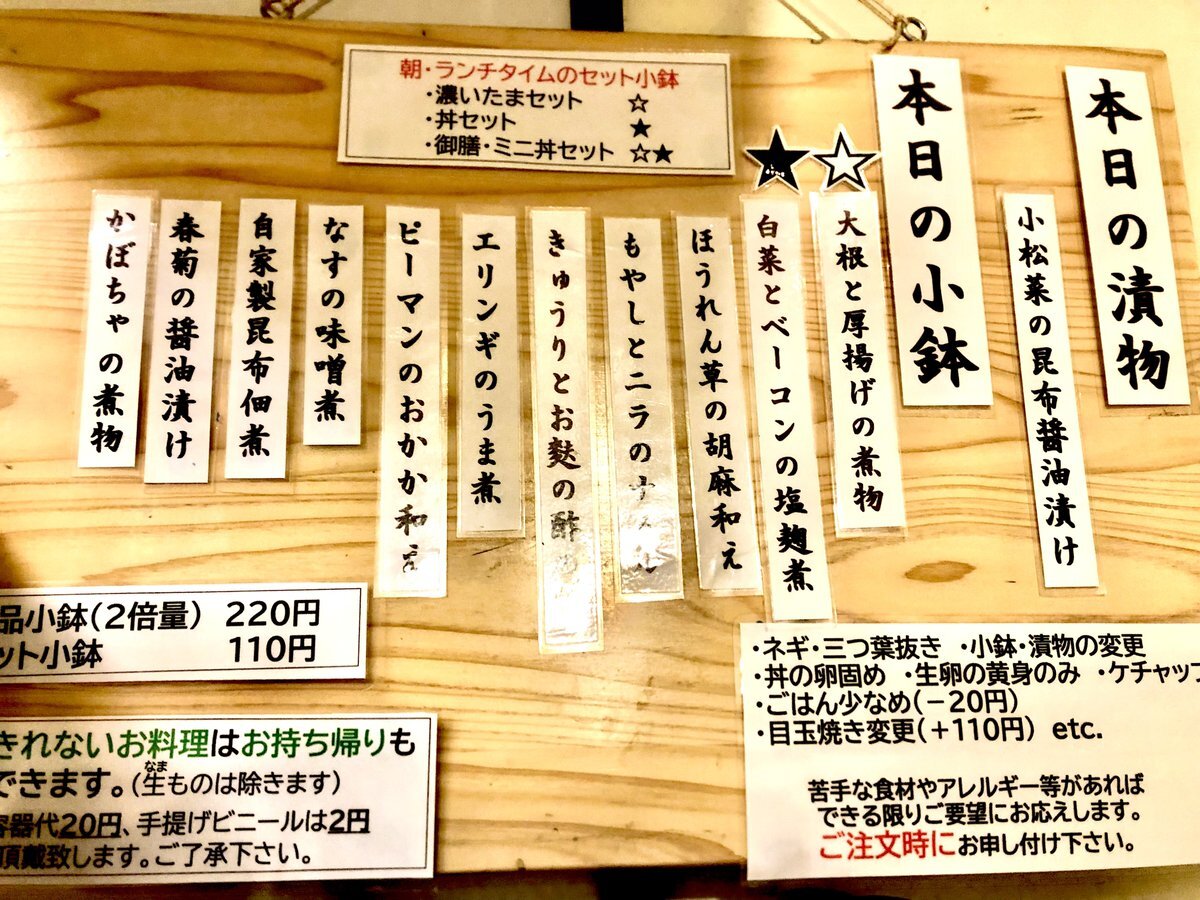 朝・ランチタイムのセット小鉢
・濃いたまセット ☆
・丼セット ★
・御膳・ミニ丼セット ☆★
本日の漬物
小松菜の昆布醤油漬け
本日の小鉢
☆
大根と厚揚げの煮物
★
白菜とベーコンの塩麹煮
ほうれん草の胡麻和え
もやしとニラの
きゅうりとお麩の酢
エリンギのうま煮
ピーマンのおかか和え
なすの味噌煮
自家製昆布佃煮
春菊の醤油漬け
かぼちゃの煮物
品小鉢(2倍量) 220円
ット小鉢 110円
きれないお料理はお持ち帰りも
できます。(生ものは除きます)
なま
容器代20円、手提げビニールは2円
頂戴致します。ご了承下さい。
・ネギ・三つ葉抜き ・小鉢・漬物の変更
・丼の卵固め ・生卵の黄身のみ ・ケチャップ
・ごはん少なめ(－20円)
・目玉焼き変更(＋110円) etc.
苦手な食材やアレルギー等があれば
できる限りご要望にお応えします。
ご注文時にお申し付け下さい。